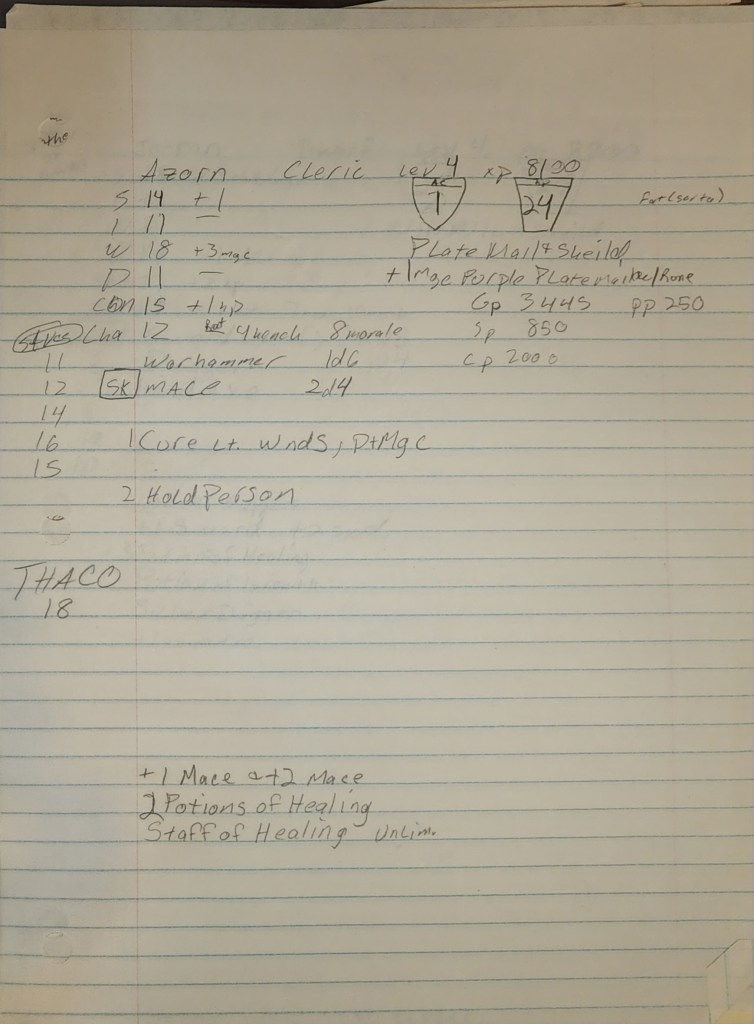 the
Azorn Cleric Lev 4 xp 8100
S 14 +1 AC 1 HP 24 Fat (sorta)
I 11 —
W 18 +3 mgc Plate Mail & Sheild
D 11 — +1 Mgc Purple Plate mail
Con 15 +1 hp Gp 3445 pp 250
Cha 12 4 hench 8 morale Sp 850
11 Warhammer 1d6 Cp 2000
12 SK MACE 2d4
14
16 1 Cure Lt. Wnds, DtMgc
15
2 Hold Person
THACO
18
+1 Mace +2 Mace
2 Potions of Healing
Staff of Healing Unlim.